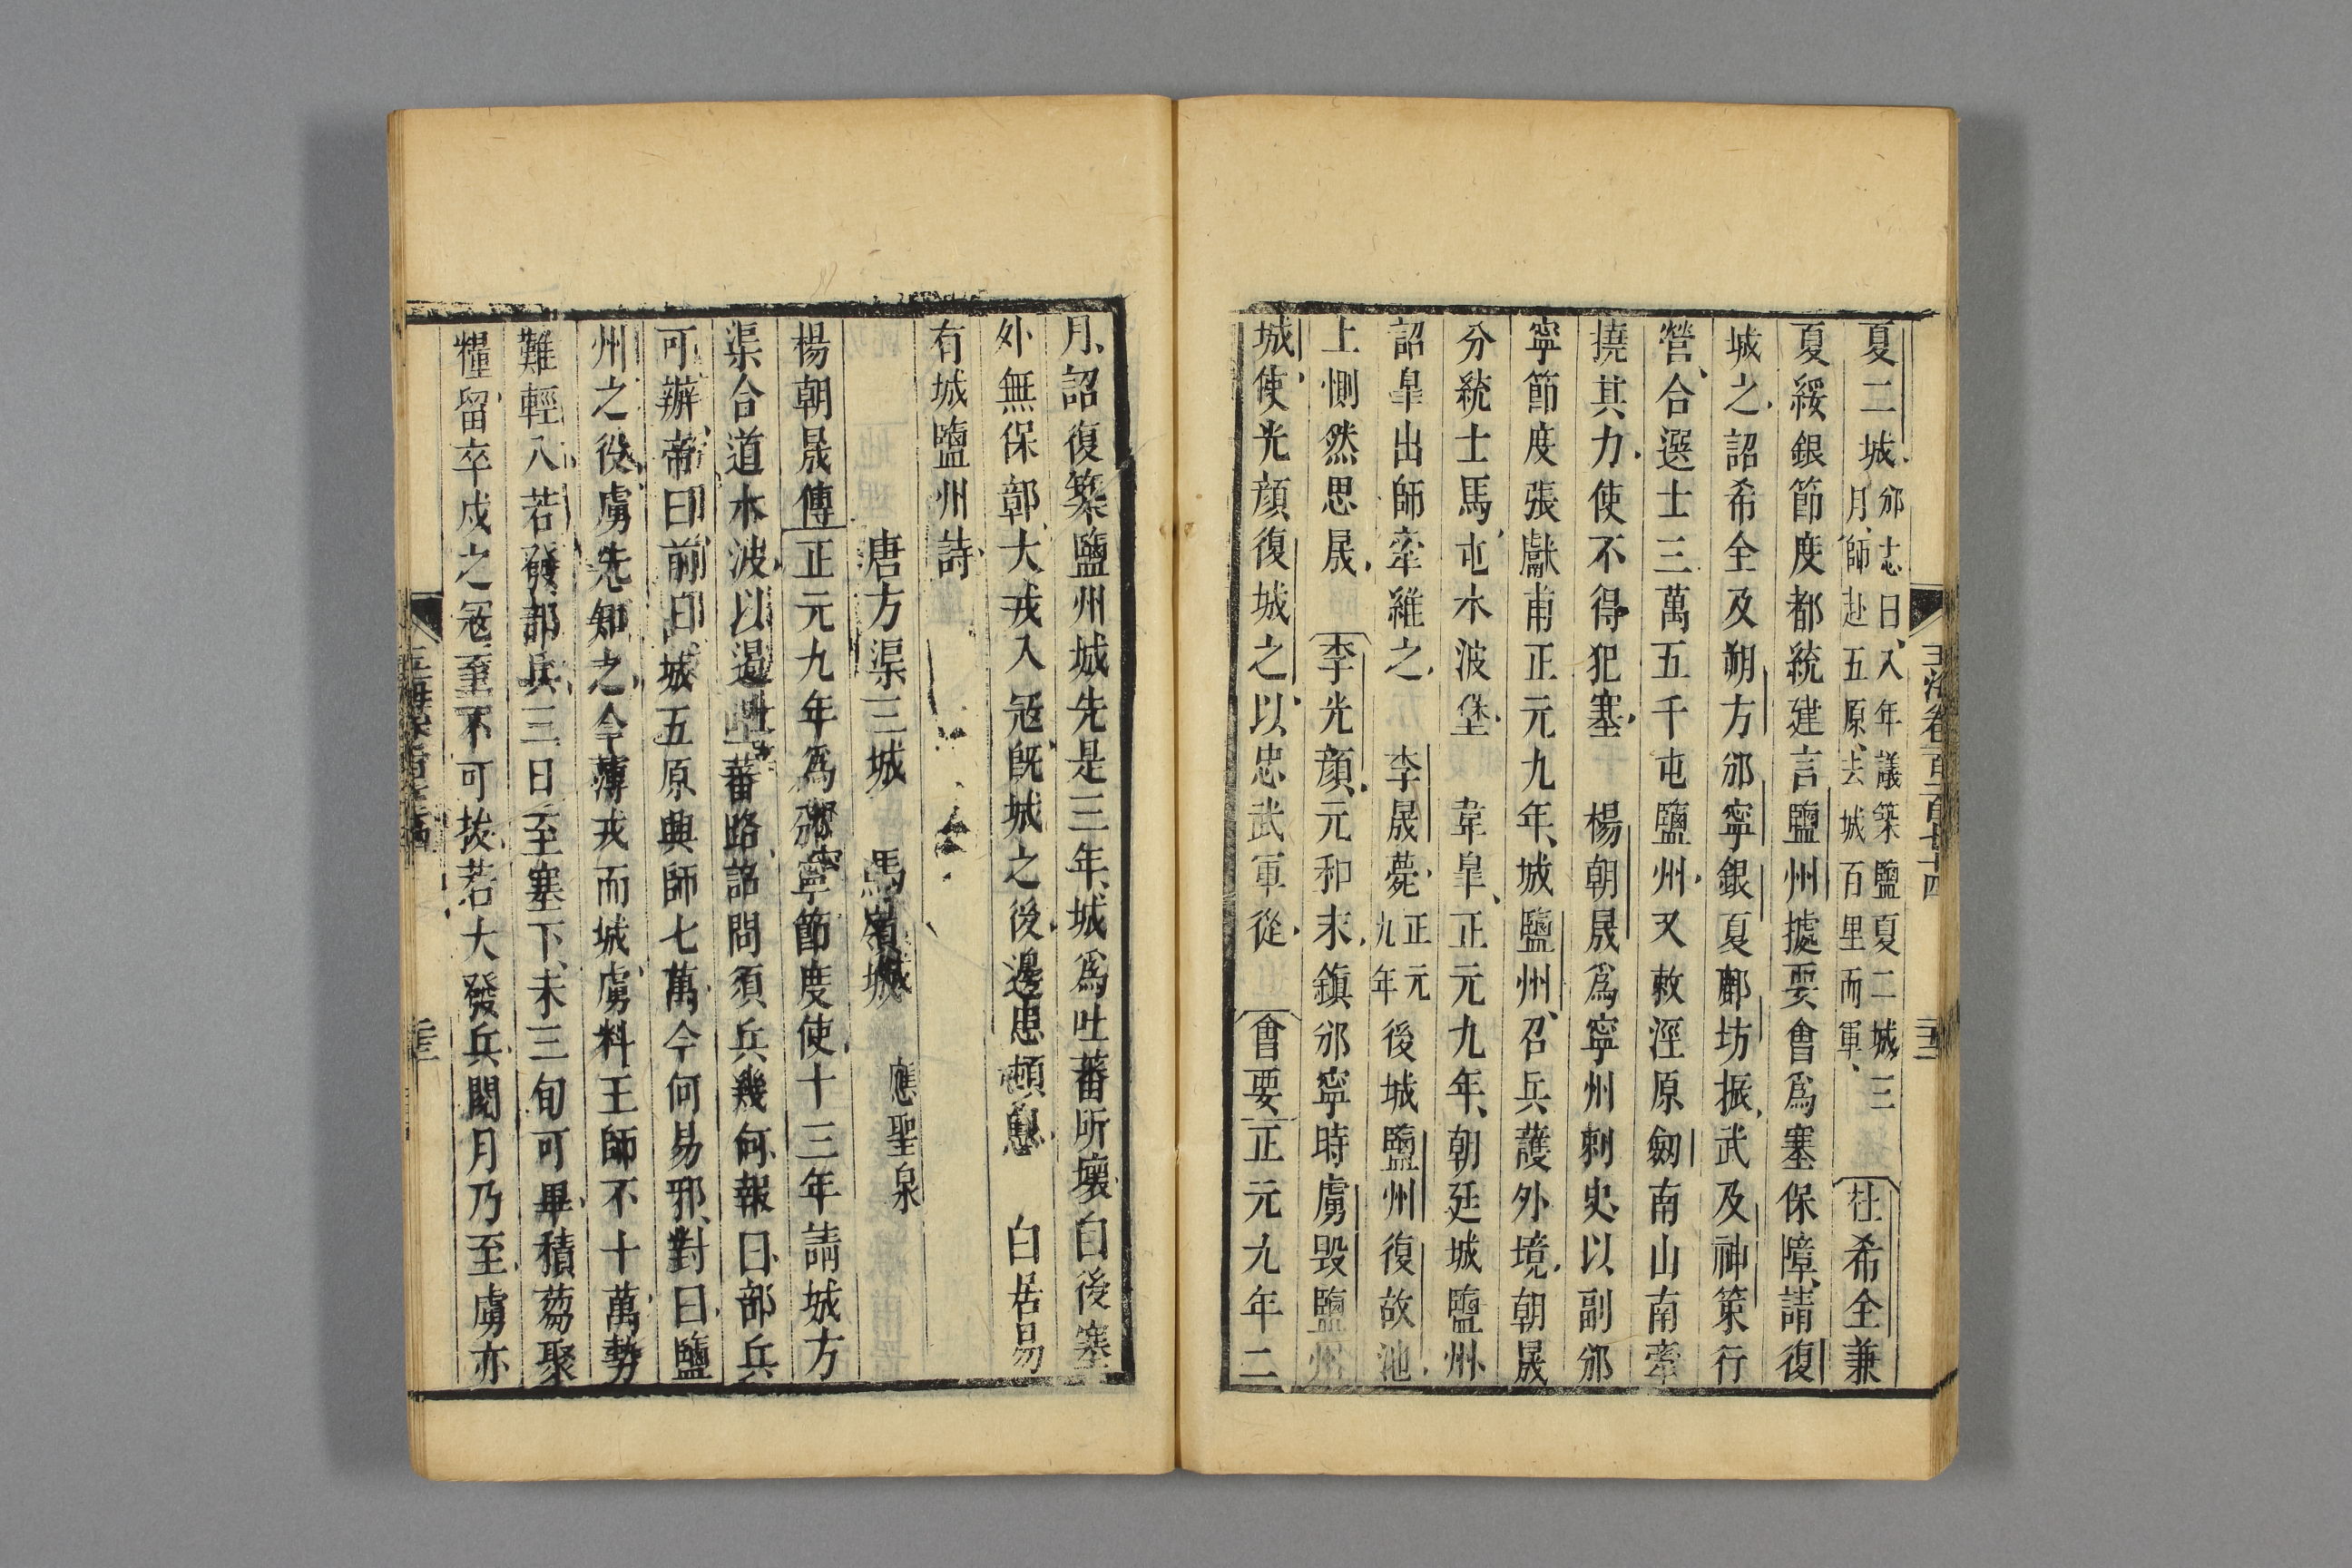 夏二城邠志曰入年議築鹽夏二城三月師赴五原去城百里而軍杜希全兼
夏綏銀節度都統建言鹽州據要會為塞保障請復
城之詔希全及朔方邠寧銀夏鄜坊振武及神策行
營合選士三萬五千屯鹽州又敕涇原劒南山南牽
撓其力使不得犯塞　楊朝晟為寧州刺史以副邠
寧節度張獻甫正元九年城鹽州召兵護外境朝晟
分統士馬屯木波堡　韋臯正元九年朝廷城鹽州
詔臯出師牽維之　李晟薨正元九年後城鹽州復故池
上惻然思晟李光顔元和末鎮邠寧時虜毀鹽州
城使光顔復城之以忠武軍從　會要正元九年二
玉海卷一百七十四
月詔復築鹽州城先是三年城為吐蕃所壞自後塞
外無保鄣犬戎入冦旣城之後邊患頓息　白居易
有城鹽州詩
唐方渠三城　馬嶺城　應聖泉
楊朝晟傳正元九年為邠寧節度使十三年請城方
渠合道木波以遏吐蕃路詔問須兵幾何報曰部兵
可辦帝曰前日城五原興師七萬今何易邪對曰鹽
州之役虜先知之今薄戎而城虜料王師不十萬勢
難輕入若發部兵三日至塞下未三旬可畢積芻聚
糧留卒戍之冦至不可拔若大發兵閱月乃至虜亦